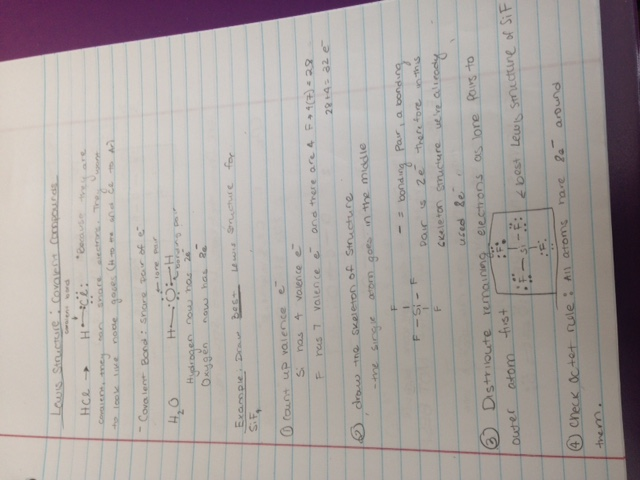 Lewis Structure: Covalent Compounds
covalent bond
HCl → H—Cl: *Because they are
covalent, they can share electrons. They want
to look like noble gases (H→He and Cl to Ar)
- Covalent Bond: share pair of e⁻
←lone pair
H₂O H—O—H
bonding pair
Hydrogen now has 2e⁻
Oxygen now has 8e⁻
Example: Draw Best Lewis structure for
SiF₄
① Count up valence e⁻
S has 4 valence e⁻
F has 7 valence e⁻ and there are 4 F → 4(7) = 28
28+4=32 e⁻
② draw the skeleton of structure
- the single atom goes in the middle
F
F - Si - F
F
- = bonding pair, a bonding
pair is 2e⁻ therefore in this
skeleton structure we've already
used 8e⁻.
③ Distribute remaining electrons as lone pairs to
outer atom fist
:F: :F—Si—F: :F:
best Lewis structure of SiF
④ Check Octet rule: All atoms have 8e⁻ around
them.